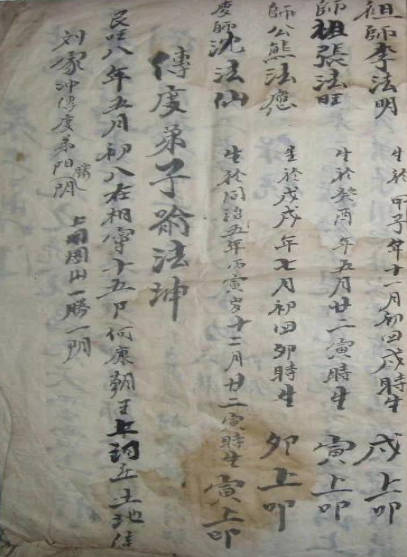 祖師李法明 生於甲子年十一月初四戌時生 戌上叩
師祖張法旺 生於癸酉年五月廿二寅時生 寅上叩
師公熊法應 生於戊戌年七月初四卯時生 卯上叩
度師沈法仙 生於同治五年丙寅岁十二月廿二寅時生 寅上叩
傳度弟子喻法坤
民国八年五月初八在湘寧十五都何康朝王上祠五土地住
刘家冲傳度弟阳 上